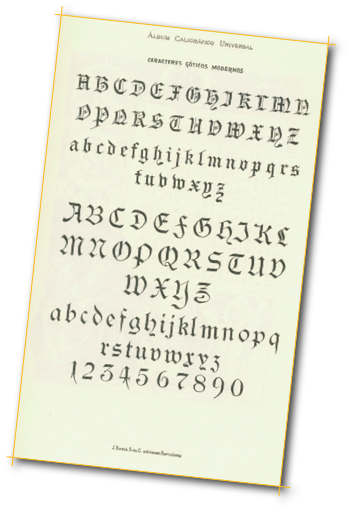 ÁLBUM CALIGRÁFICO UNIVERSAL
CARACTERES GÓTICOS MODERNOS
ABCDEFGHIJKLMN
OPQRSTUVWXYZ
abcdefghijklmnopqrs
tuvwxyz
ABCDEFGHIJKL
MNOPQRSTUV
WXYZ
abcdefghijklmnopq
rstuvwxyz
1234567890